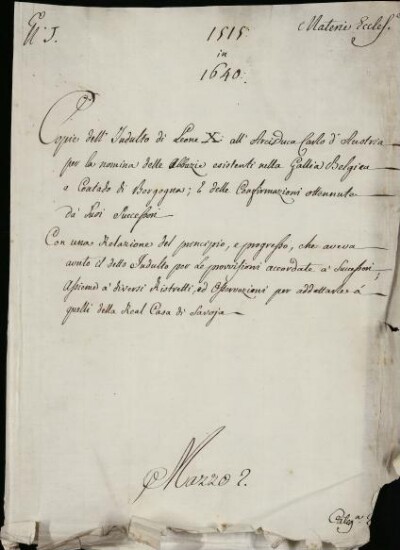 N.º 5.
Materie Eccles.e
1515
in
1640.
Copie dell' Indulto di Leone X. all' Arciduca Carlo d'Austria
per la nomina delle Abbazie esistenti nella Gallia Belgica
o Contado di Borgogna; E delle Confirmazioni ottenute
da suoi Successori
Con una Relazione del principio, e progresso, che aveva
avuto il detto Indulto per le provvisioni accordate a' Successori,
Assieme a' diversi Ristretti, ed Osservazioni per addattarle a'
quelli della Real Casa di Savoja
Mazzo 2.